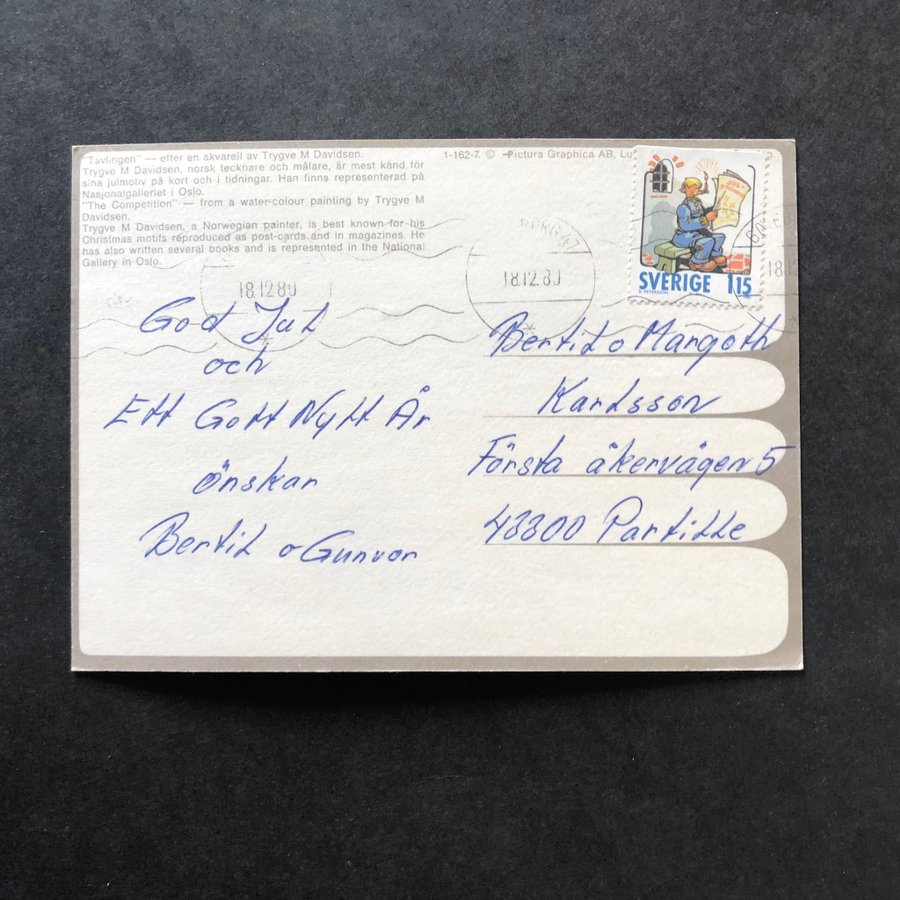 "Tävlingen" — efter en akvarell av Trygve M Davidsen.
Trygve M Davidsen, norsk tecknare och målare, är mest känd för
sina julmotiv på kort och i tidningar. Han finns representerad på
Nasjonalgalleriet i Oslo.
"The Competition" — from a water-colour painting by Trygve M
Davidsen.
Trygve M Davidsen, a Norwegian painter, is best known for his
Christmas motifs reproduced as post-cards and in magazines. He
has also written several books and is represented in the National
Gallery in Oslo.
1-162-7. © Pictura Graphica AB,
SVERIGE 115
18.12.80
18.12.80
God Jul
och
Ett Gott Nytt År
önskar
Bertil o Gunvor
Bertil o Margoth
Karlsson
Första åkervägen 5
43300 Partille